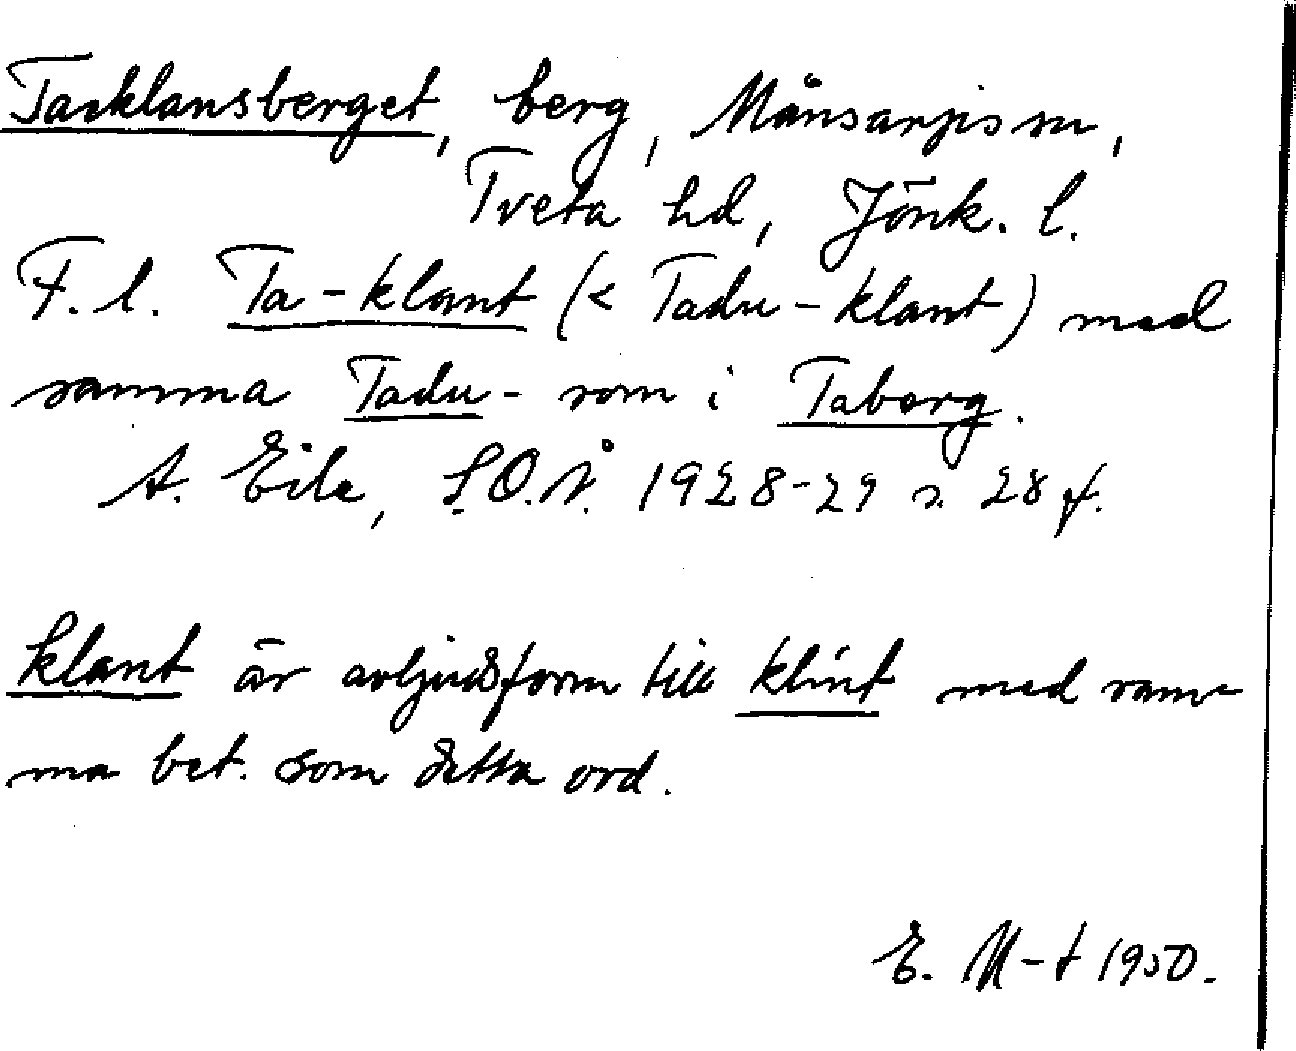 Tacklansberget, berg, Månsarps sn,
Tveta hd, Jönk. l.
F. l. Ta-klant (< Tadu-klant) med
samma Tadu- som i Taberg.
A. Ejle, S.O.Å. 1928-29 s. 28 f.
klant är avljudsform till klint med sam-
ma bet. som detta ord.
E. M-t 1950.